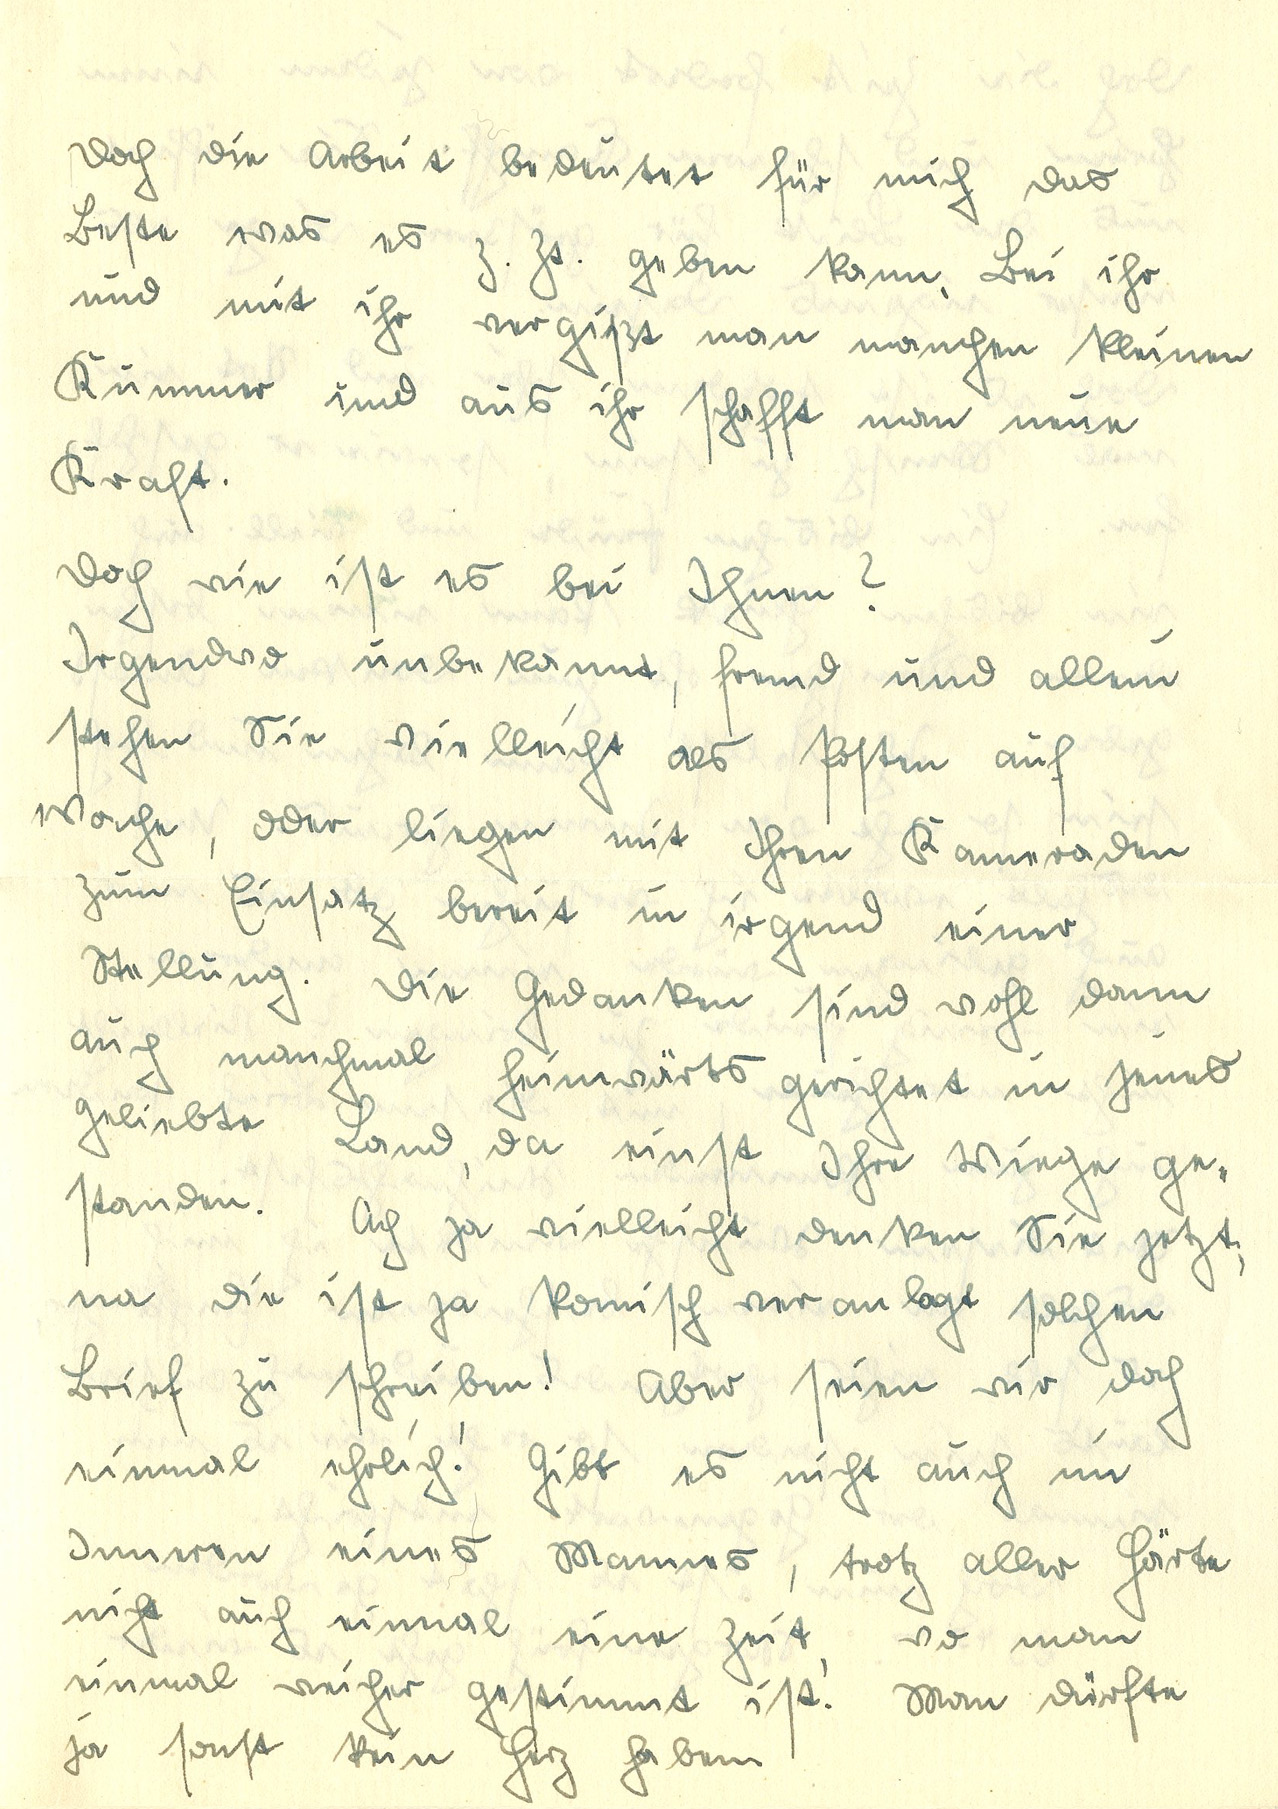 Doch die Arbeit bedeutet für mich das
Beste was es z. Zt. geben kann. Bei ihr
und mit ihr vergißt man manchen kleinen
Kummer und aus ihr schafft man neue
Kraft.
Doch wie ist es bei Ihnen?
Irgendwo unbekannt, fremd und allein
stehen Sie vielleicht als Posten auf
Wache, oder liegen mit Ihren Kameraden
zum Einsatz bereit in irgend einer
Stellung. Die Gedanken sind wohl dann
auch manchmal heimwärts gerichtet in jenes
geliebte Land, da einst Ihre Wiege ge-
standen. Ach ja vielleicht denken Sie jetzt,
na die ist ja komisch veranlagt solchen
Brief zu schreiben! Aber seien wir doch
einmal ehrlich! Gibt es nicht auch im
Inneren eines Mannes, trotz aller Härte
nicht auch einmal eine Zeit, wo man
einmal weicher gestimmt ist! Man dürfte
ja sonst kein Herz haben